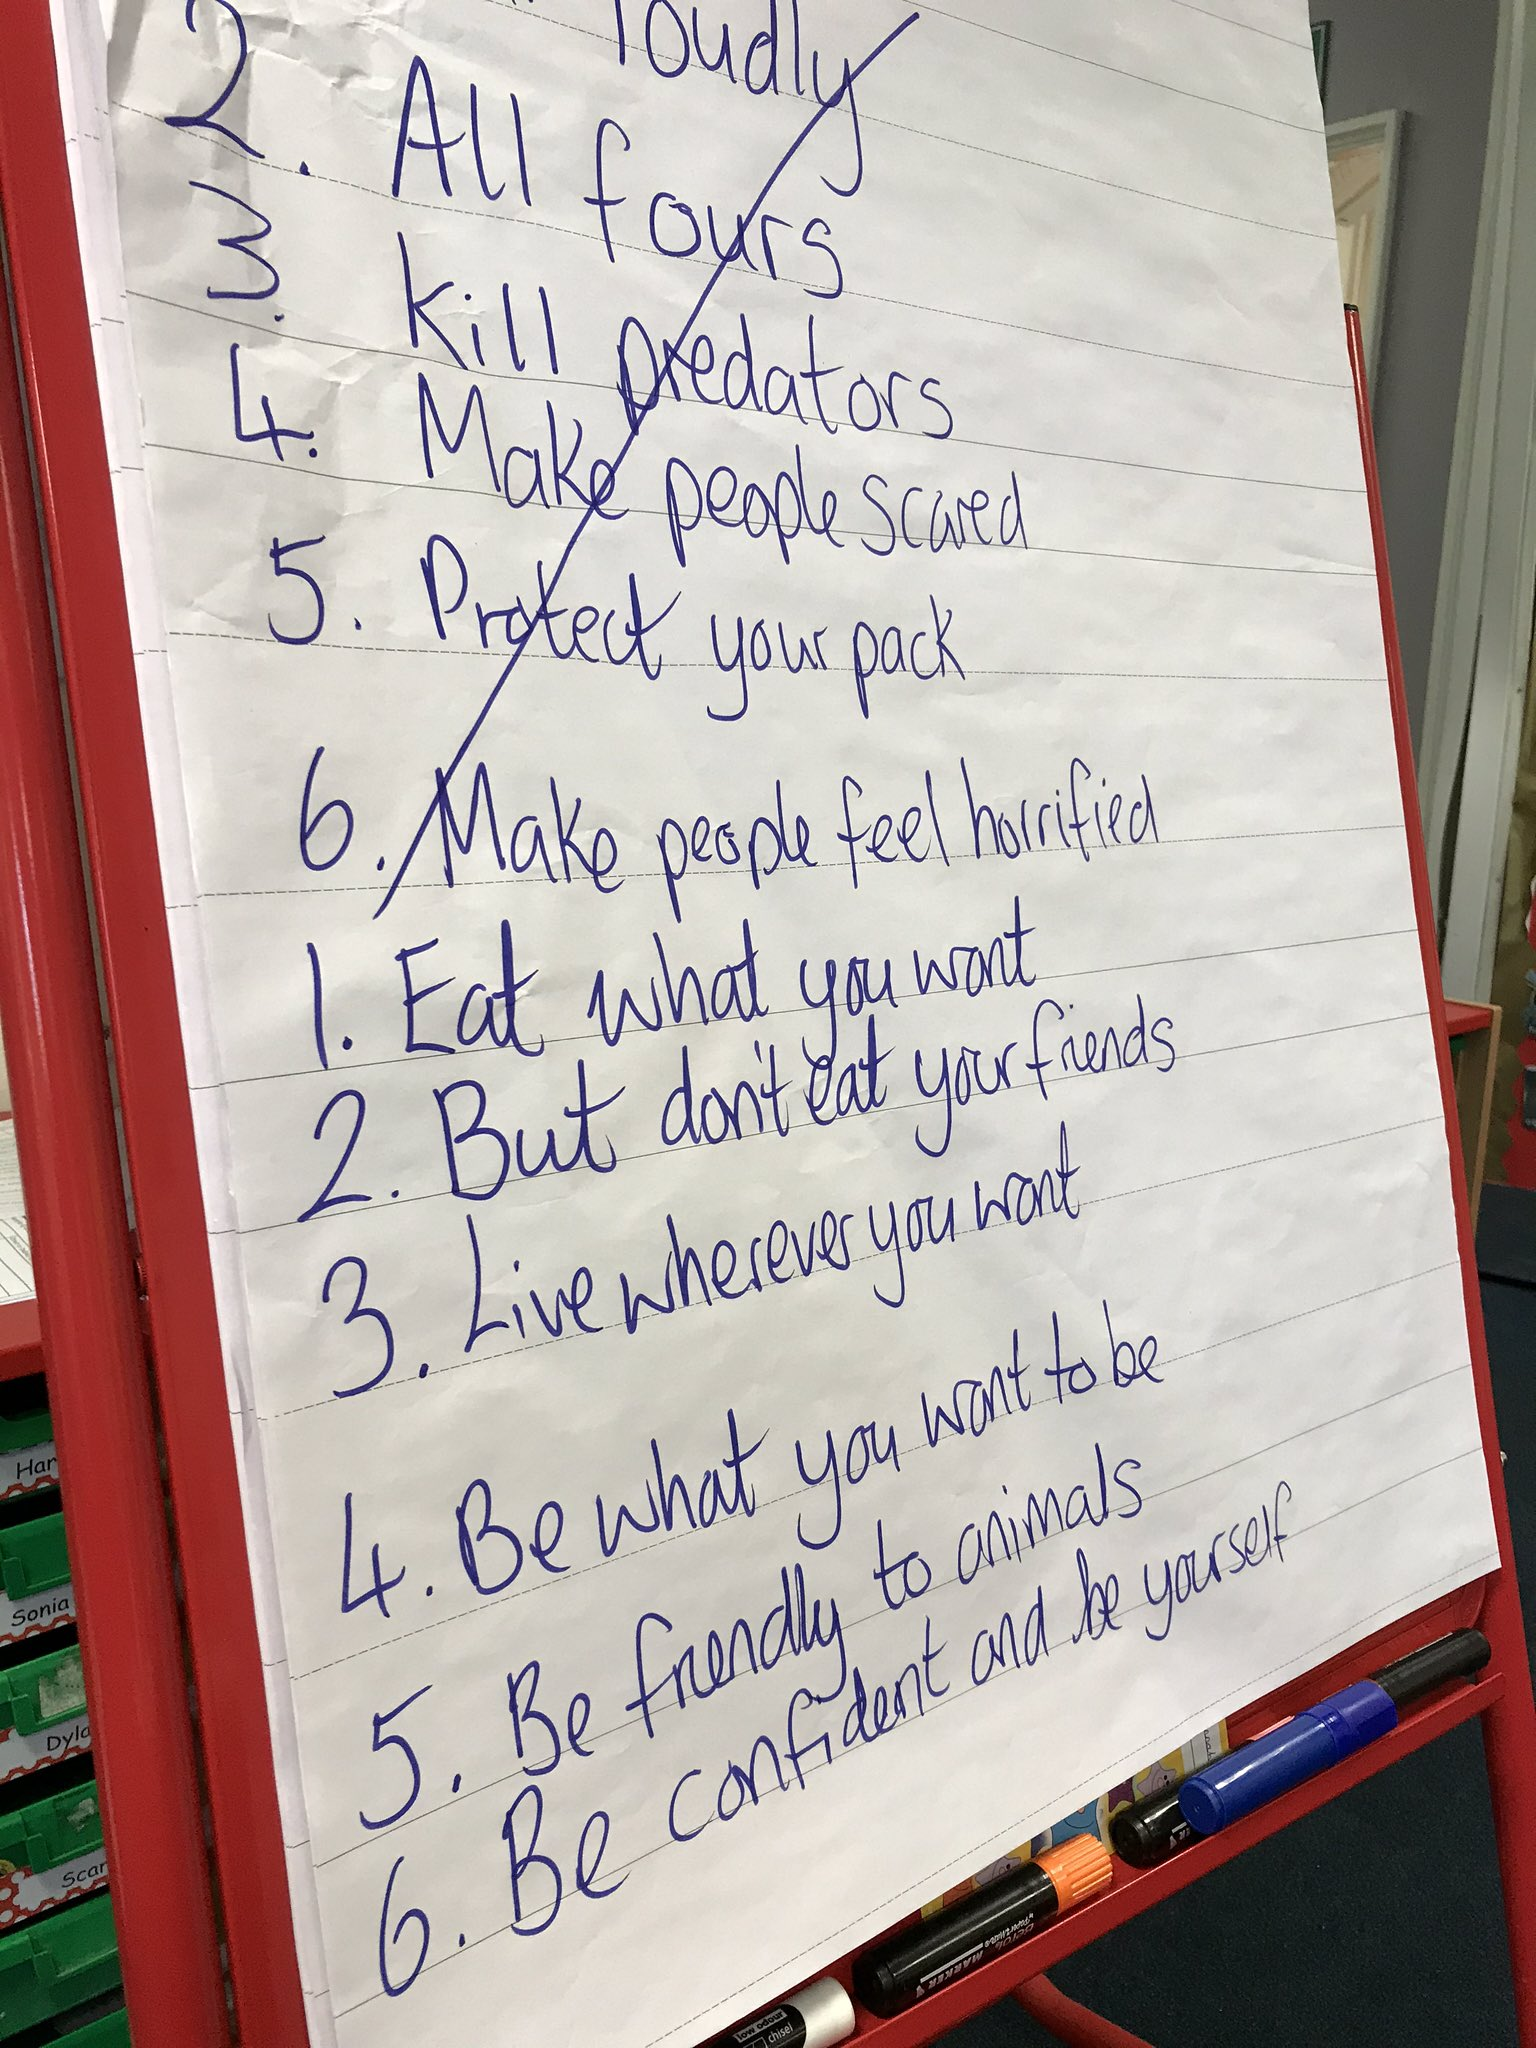 loudly
2. All fours
3. Kill predators
4. Make people scared
5. Protect your pack
6. Make people feel horrified
1. Eat what you want
2. But don't eat your friends
3. Live wherever you want
4. Be what you want to be
5. Be friendly to animals
6. Be confident and be yourself
Har
Sonia
Dyla
Scar
Berol MARKER
low odour
chisel